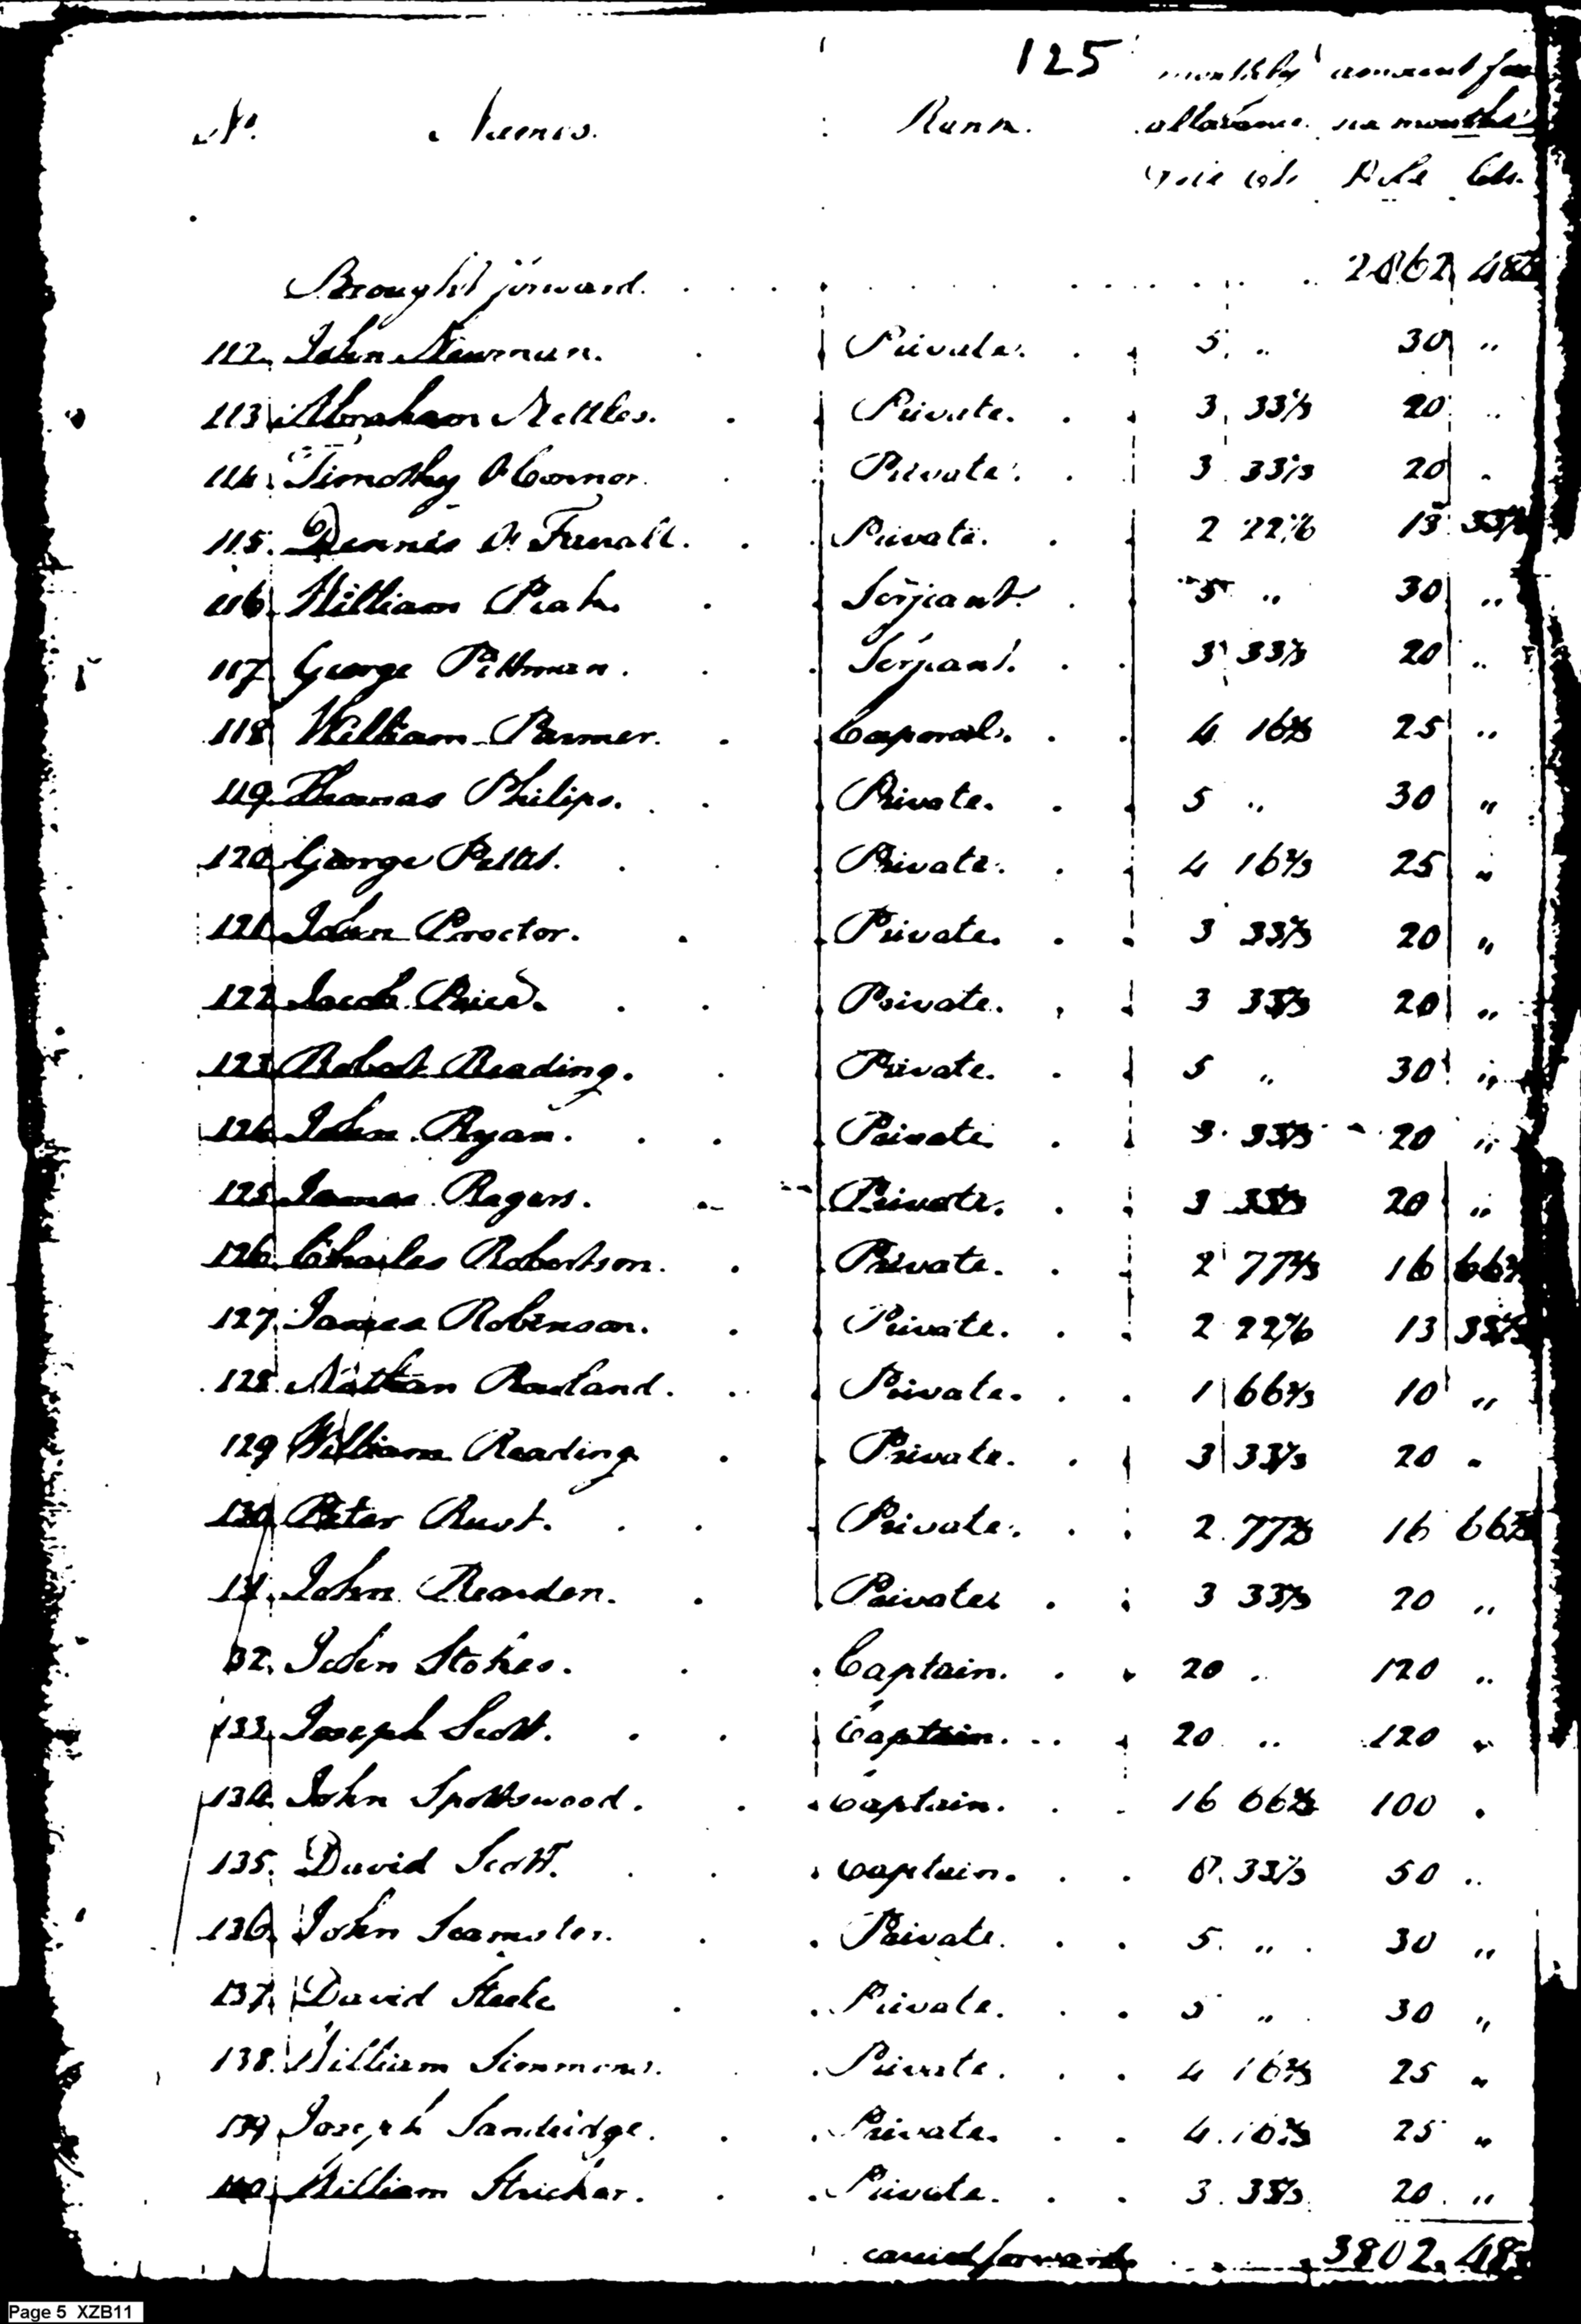 125
monthly amount for
No. Names. Rank. allowance. six months
Dols Cts. Dols Cts.
Brought forward. 2862 48
112. John Newman. Private. 5 " 30 "
113. Abraham Nettles. Private. 3 33 1/3 20 "
114. Timothy O Connor. Private. 3 33 1/3 20 "
115. Dennis O. Private. 2 22 2/6 13 33
116. William Serjeant. 5 " 30 "
117. George Pittman. Serjeant. 3 33 1/3 20 "
118. William Parmer. Corporal. 4 16 2/3 25 "
119. Thomas Philips. Private. 5 " 30 "
120. George Pettit. Private. 4 16 2/3 25 "
121. John Proctor. Private. 3 33 1/3 20 "
122. Jacob Price. Private. 3 33 1/3 20 "
123. Robert Reading. Private. 5 " 30 "
124. John Ryan. Private. 3 33 1/3 20 "
125. James Rogers. Private. 3 33 1/3 20 "
126. Charles Robertson. Private. 2 77 2/3 16 66 2/3
127. James Robinson. Private. 2 22 2/6 13 33 1/3
128. Nathan Rowland. Private. 1 66 2/3 10 "
129. William Reading Private. 3 33 1/3 20 "
130. Peter Rust. Private. 2 77 2/3 16 66 2/3
131. John Rearden. Private 3 33 1/3 20 "
132. John Stokes. Captain. 20 " 120 "
133. Joseph Scott. Captain. 20 " 120 "
134. John Spottswood. Captain. 16 66 2/3 100 "
135. David Scott. Captain. 8 33 1/3 50 "
136. John Seamster. Private. 5 " 30 "
137. David Steele Private. 5 " 30 "
138. William Simmons. Private. 4 16 2/3 25 "
139. Joseph Sandridge. Private. 4 16 2/3 25 "
140. William Stricker. Private. 3 33 1/3 20 "
carried forward 3802. 48
Page 5 XZB11